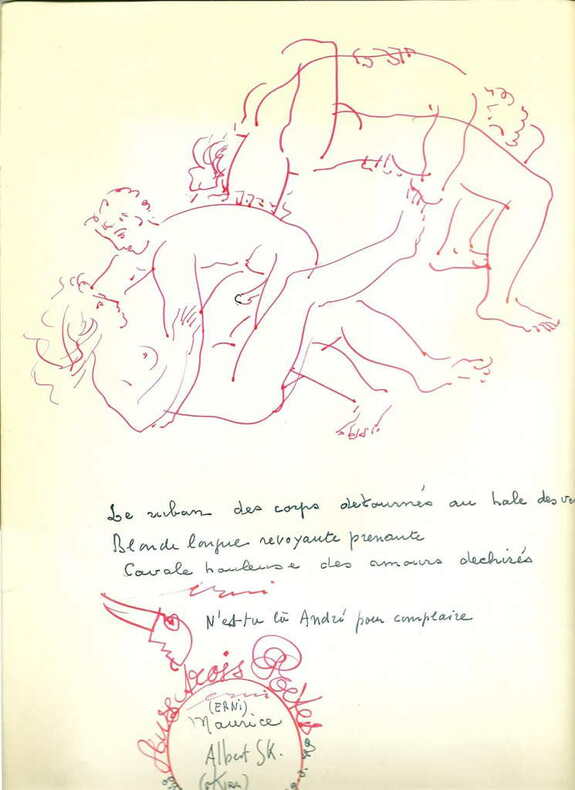 Le ruban des corps détournés au hale des
Blonde longue revoyante prenante
Cavale houleuse des amours déchirés
erni
N'es-tu là André pour complaire
trois Poètes
erni
(ERNI)
Maurice
Albert SK.